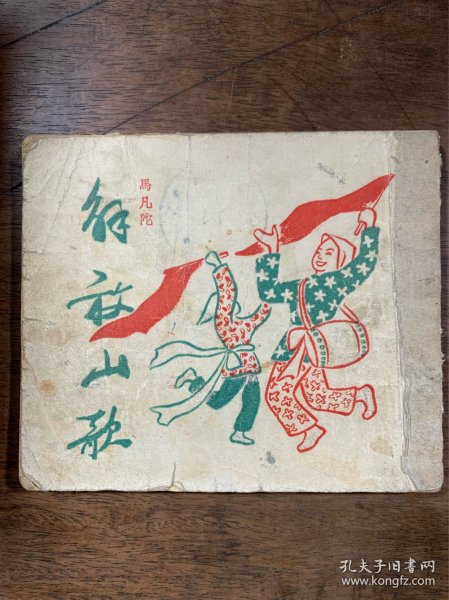 馬凡陀
解放山歌
孔夫子旧书网
www.kongfz.com